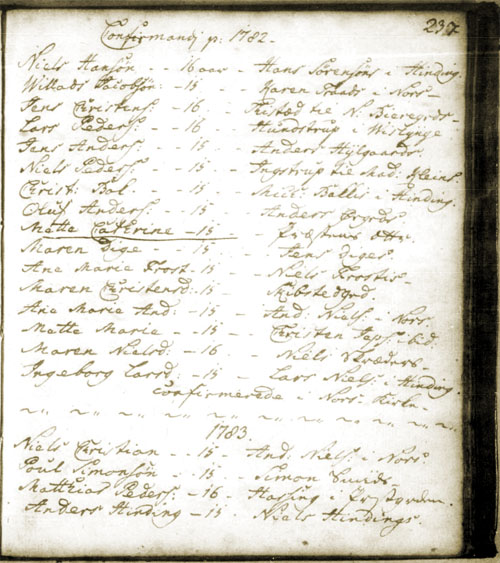 237
Confirmandi p: 1782.
Niels Hansøn - - 16 aar - Hans Sørensøns i Hinding.
Willads Jacobsøn - 15 - - Karen i Nors -
Jens Christens: - 16 - - til N:
Lars Peders: - - 16 - - Hundstrup i
Jens Anders: - - 15 - - Anders Hylgaards.
Niels Peders: - - 15 - - Ingstrup til Mad: Kleins.
Christ: Bal - - 15 - - Balles i Hinding.
Oluf Anders: - - 15 - - Anders
Mette Cathrine - 15 - -
Maren Dige - - 15 - - Jens Diges
Ane Marie Frost - 15 - - Niels Frostis -
Maren Christensd: - 15 - -
Ane Marie And: - 15 - - And: Niels: i Nors.
Mette Marie - - 15 - - Christen Jeps: ibid.
Maren Nielsd: - 16. - - Niels Skræders -
Ingeborg Larsd: - 15 - - Lars Niels: i Hinding.
Confirmerede i Nors Kirke -
1783.
Niels Christian - - 15 - And: Niels: i Nors
Poul Simonsøn - - 15 - Simon Smids
Matthias Peders: - 16 - Hassing i
Anders Hinding - 15 - Niels Hindings.